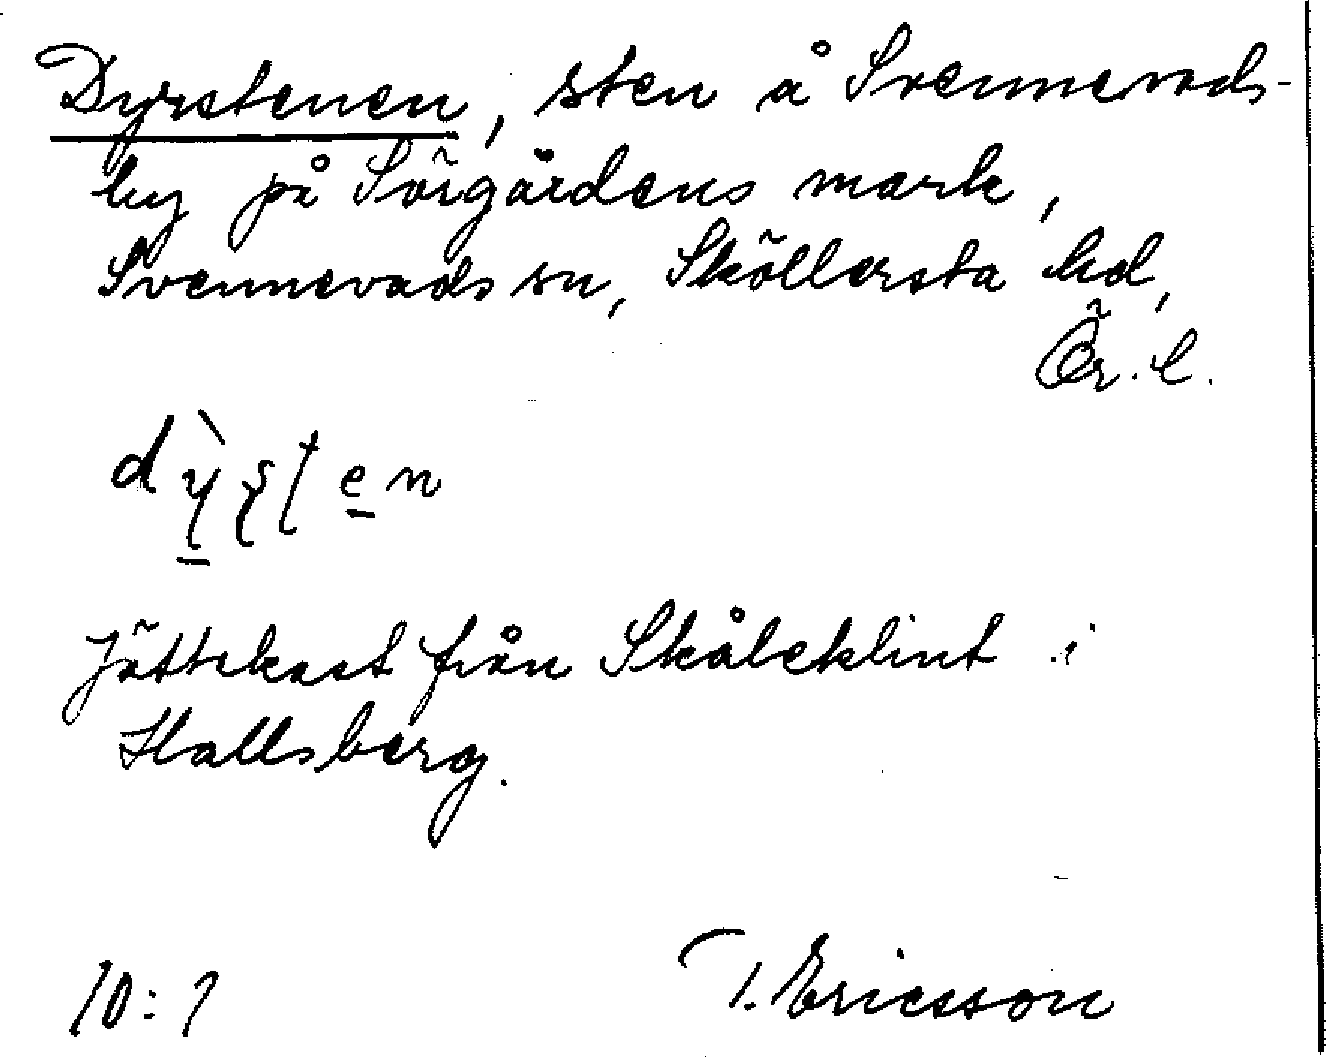 Dyrstenen, sten å Svennevads-
by på Sörgårdens mark,
Svennevads sn, Sköllersta hd,
Ör. l.
Jättekast från Skåleklint i
Hallsberg.
10:1
T. Ericsson